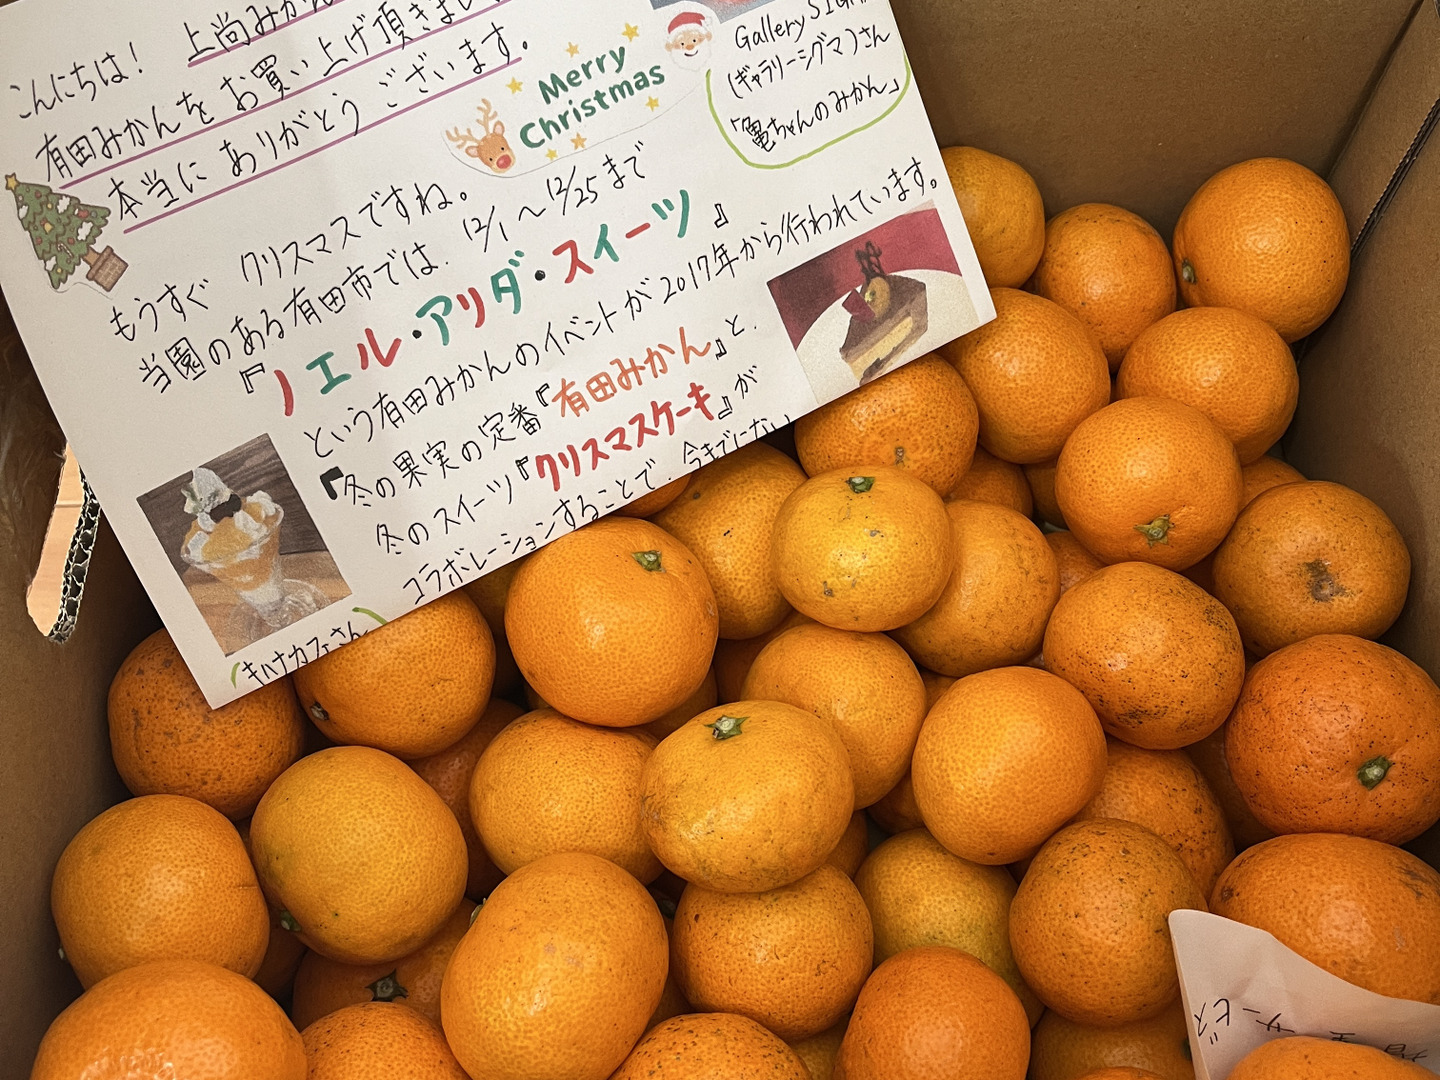 こんにちは! 上尚みかん
有田みかんを お買い上げ頂きまし
本当に ありがとう ございます。
Merry
Christmas
Gallery SIGMA
(ギャラリーシグマ)さん
「亀ちゃんのみかん」
もうすぐ クリスマスですね。
当園のある有田市では、12/1〜12/25まで
『ノエル・アリダ・スイーツ』
という有田みかんのイベントが2017年から行われています。
『冬の果実の定番『有田みかん』と、
冬のスイーツ『クリスマスケーキ』が
コラボレーションすることで、今までにない
キハナカフェさん
サービス